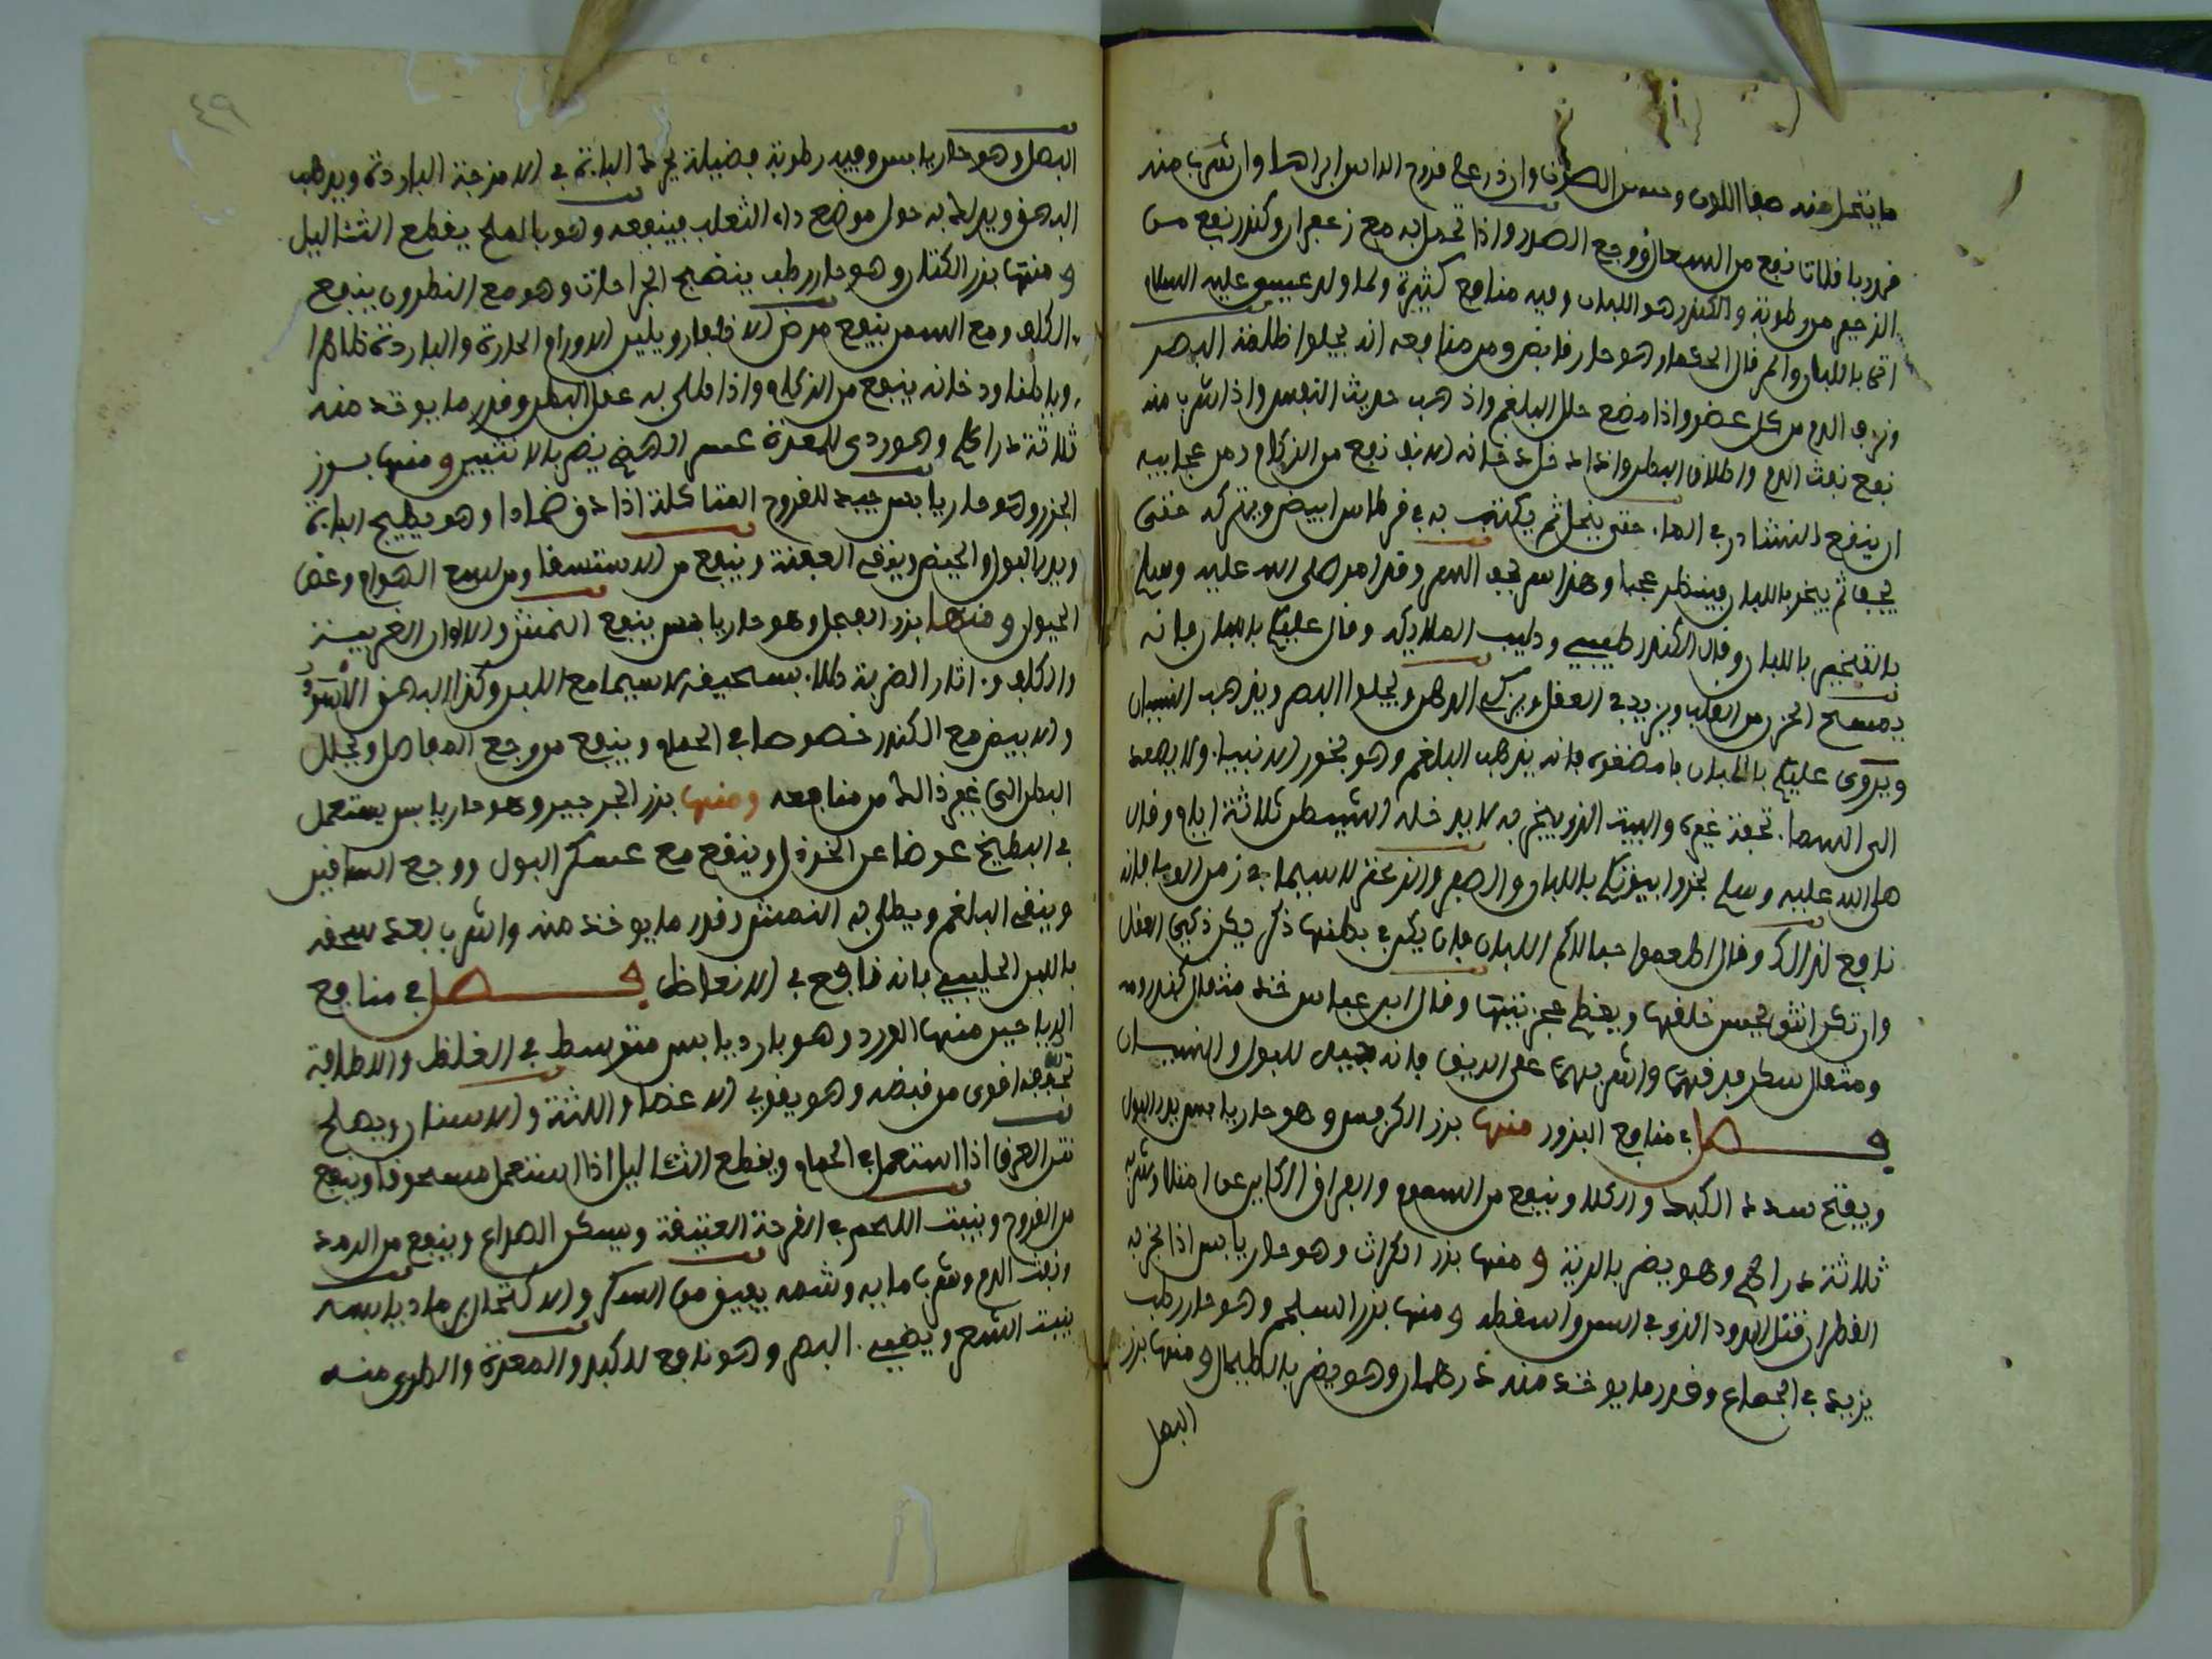 ما يتحمل منه صفا اللون وحسن الصوت وان ذر على قروح الراس ابراها وان شرب منه
قدر باقلاتا نفع من السعال ووجع الصدر واذا تحمل به مع زعفران وكندر نفع من
الزحير من رطوبة والكندر هو اللبان وفيه منافع كثيرة ولما ولد عيسى عليه السلام
اتى باللبان والمر قال الحكما وهو حار قابض ومن منافعه انه يجلوا ظلمة البصر
ونزف الدم من كل عضو واذا مضغ حلل البلغم واذهب حديث النفس واذا شرب منه
نفع نفث الدم واطلاق البطن واذا دخل دخانه الانف نفع من الزكام ومن عجايبه
ان ينفع النشادر في الما حتى ينحل ثم يكتب به في قرطاس ابيض ويترك حتى
يجف ثم يبخر باللبان فينظر عجبا وهذا سر تحف السر وقد امر صلى الله عليه وسلم
بالتبخير باللبان وقال الكندر طيبي وطيب الملايكة وقال عليكم باللبان فانه
يمسح الحزن من القلب ويزيد في العقل ويزكي الذهن ويجلوا البصر ويذهب النسيان
ويروى عليكم باللبان فامضغوه فانه يذهب البلغم وهو بخور الانبيا ولا يصعد
الى السما تحفة غيره والبيت الذي يبخر به لا يدخله الشيطن ثلاثة ايام وقال
صلى الله عليه وسلم بخروا بيوتكم باللبان والصعتر لاسيما في زمن الوبا فانه
نافع لذالك وقال اطعموا حبالاكم اللبان فان يكن في بطنها ذكر يكن ذكي القلب
وان تكن انثى يحسن خلقها ويعظم عجيزتها وقال ابن عباس خذ مثقال كندر ومـ
ومثقال سكر فدقهما واشربهما على الريق فانه جيد للبول والنسيان
فصل في منافع البزور منها بزر الكرفس وهو حار يابس يدر البول
ويفتح سدد الكبد والكلا وينفع من السموم والفواق الكاين عن امتلا وشربه
ثلاثة دراهم وهو يضر بالرية ومنها بزر الكراث وهو حار يابس اذا بخر به
القطران قتل الدود الذي في السن واسقطه ومنها بزر السلجم وهو حار رطب
يزيد في الجماع وقدر ما يوخذ منه درهمان وهو يضر بالطيحال ومنها بزر
البصل
٤٩
البصل وهو حار يابس وفيه رطوبة فضيلة يحرك الباه في الامزجة الباردة ويذهب
البهق ويدلك به حول موضع داء الثعلب فينفعه وهو بالملح يقطع الثثاليل
ومنها بزر الكتان وهو حار رطب ينضج الجراحات وهو مع النطرون ينفع
الكلف ومع السمن ينفع مرض الاظفار ويلين الاورام الحارة والباردة ظاهرا
وباطنا ودخانه ينفع من الزكام واذا قلي به عقل البطن وقدر ما يوخذ منه
ثلاثة دراهم وهو ردي للمعدة عسر الهضم يضر بالانثيين ومنها بزر
الجزر وهو حار يابس جيد للقروح المتاكلة اذا دق ضمادا وهو يهيج الباه
ويدر البول والحيض وينقي العفنة وينفع من الاستسقا ومن لسع الهوام وعض
الحيوان ومنها بزر الفجل وهو حار يابس ينفع النمش والالوان الغريبة
والكلف واثار الضربة طلاء بسحيقه لاسيما مع اللبن وكذا البهق الاسود
والابيض مع الكندر خصوصا في الحمام وينفع من وجع المفاصل ويحلل
البطن الى غير ذالك من منافعه ومنها بزر الجرجير وهو حار يابس يستعمل
في الطبيخ عوضا عن الخردل وينفع مع عسكر البول ووجع الساقين
وينقي البلغم ويطلى به النمش وقدر ما يوخذ منه والشرب بعد سحقه
باللبن الحليب فانه نافع في الانعاظ فصل في منافع
الرياحين منها الورد وهو بارد يابس متوسط في الغلظ واللطافة
تجفيفه اقوى من قبضه وهو يقوي الاعضا واللثة والاسنان ويصلح
نتن العرق اذا استعمل في الحمام ويقطع الثثاليل اذا استعمل مسحوقا وينفع
من القروح وينبت اللحم في القرحة العتيقة ويسكن الصداع وينفع من الرمد
ونفث الدم وشرب مايه وشمه يفيق من السكر والاكتحال برماد يابسه
ينبت الشعر ويضيء البصر وهو نافع للكبد والمعدة والطري منه